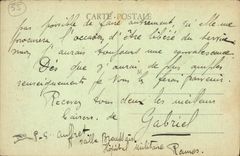 55
CARTE POSTALE
pas possible de faire autrement, si elle me
procure l'occasion d'être libéré du service
mais j'aurais toujours une convalescence.
Dès que j'aurais de plus amples
renseignements je vous le ferai parvenir.
Recevez tous deux les meilleurs
baisers de Gabriel
P.S.
salle
Hôpital militaire
Rennes.